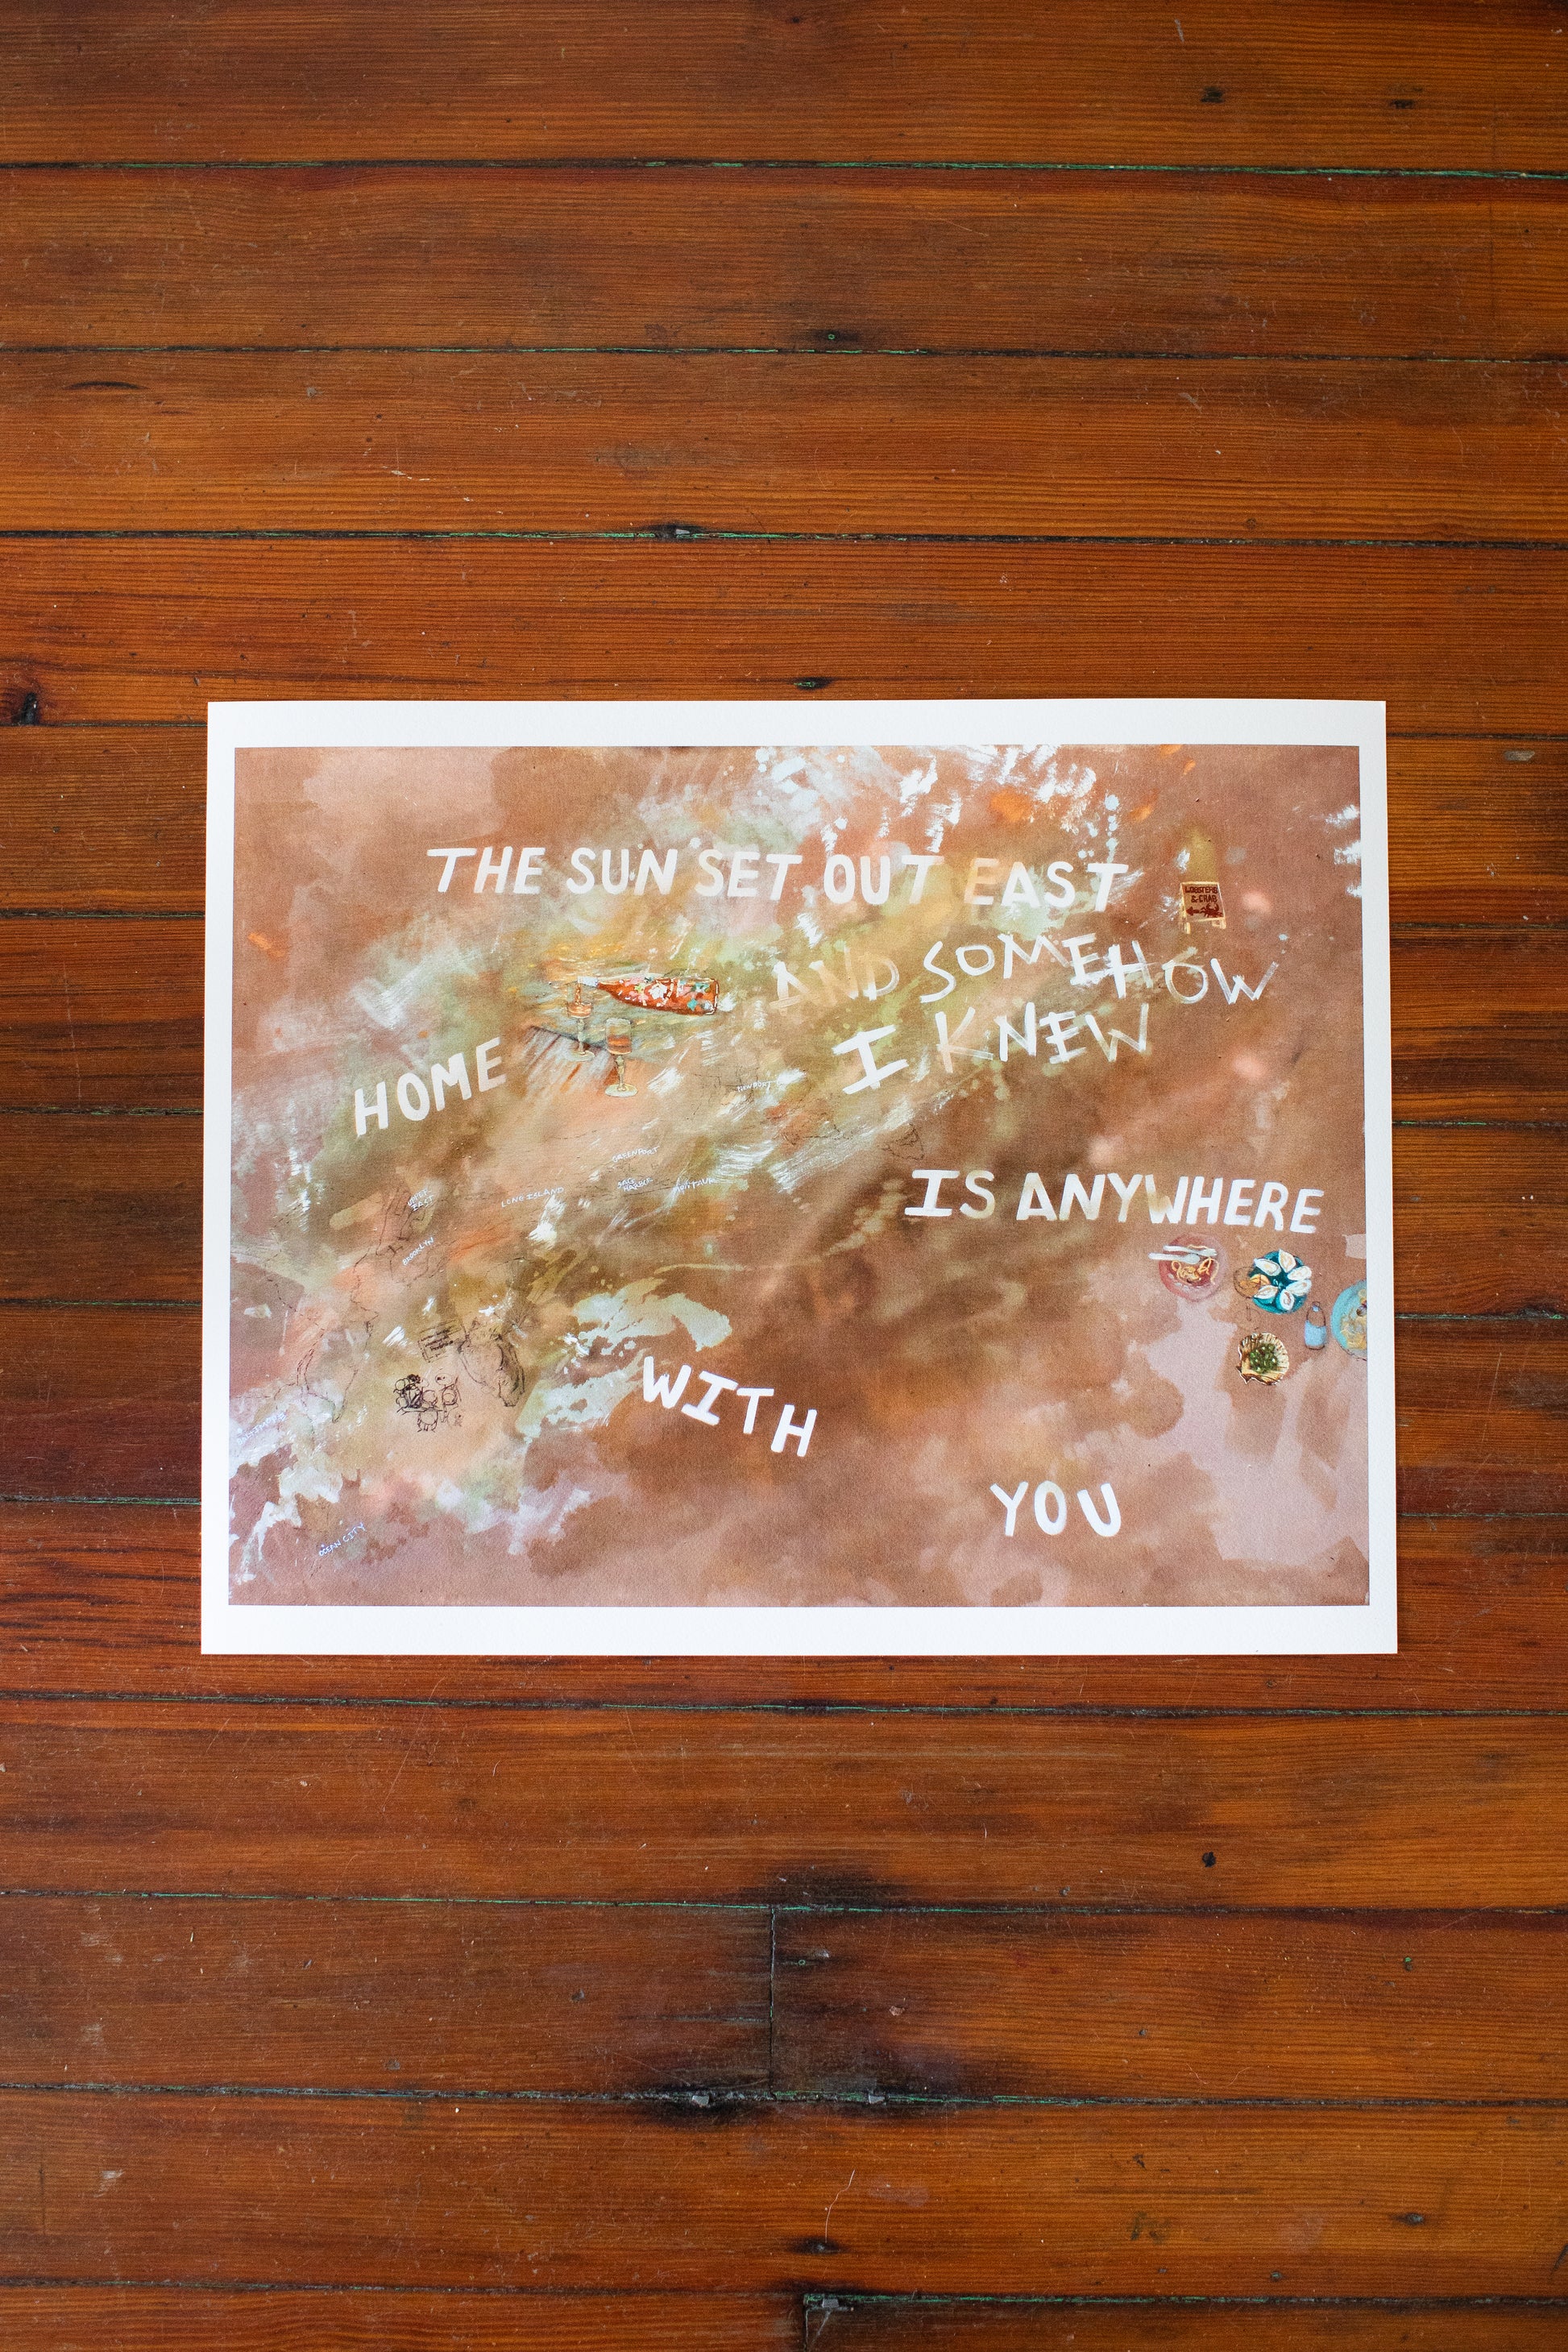 THE SUN SET OUT EAST
LOBSTERS
& CRAB
AND SOMEHOW
I KNEW
HOME
NEWPORT
GREENPORT
SAG
HARBOR
MONTAUK
LONG ISLAND
BROOKLYN
IS ANYWHERE
WITH
YOU
OCEAN CITY